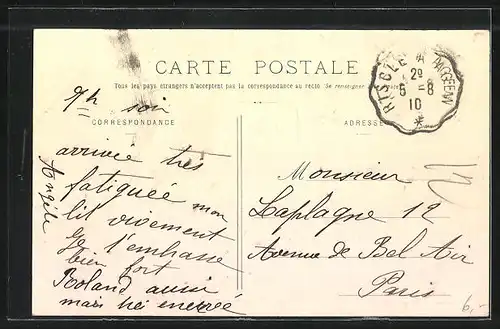 CARTE POSTALE
Tous les pays étrangers n'acceptent pas la correspondance au recto (Se renseigner
CORRESPONDANCE
ADRESSE
9h soir
arrivée très
fatiguée mon
lit vivement
Je t'embrasse
bien fort
Roland aussi
mais très énervé
Angèle
Monsieur
Laplagne 12
Avenue de Bel Air
Paris
RISCLE
2º
5 -8
10
12
6,-